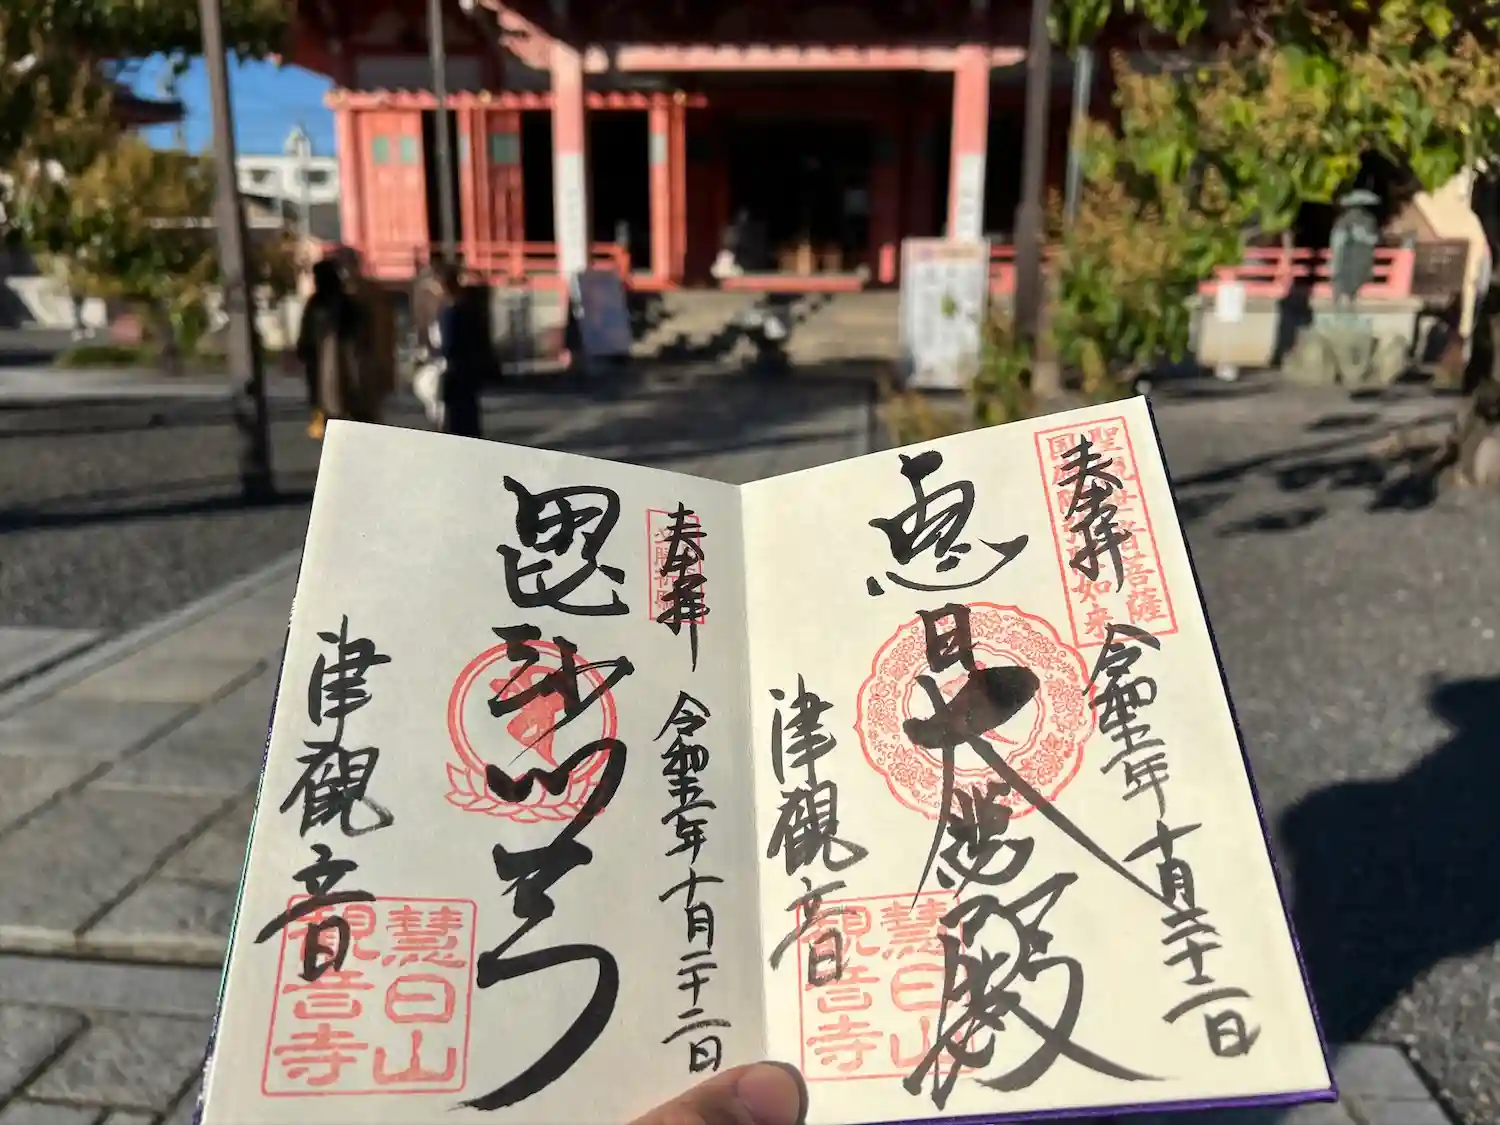 奉拝
聖観世音菩薩
国府阿弥陀如来
令和五年十月二十二日
恵日大慈殿
津観音
慧日山
観音寺
奉拝
令和五年十月二十二日
毘沙門天
津観音
慧日山
観音寺